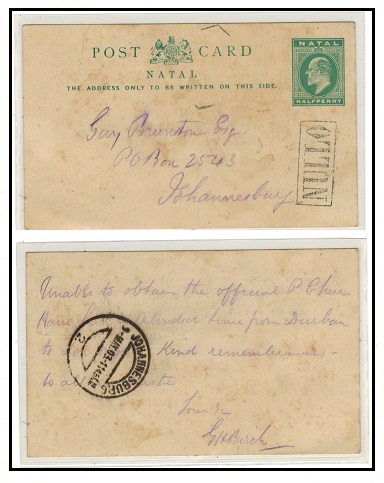 POST CARD
NATAL
THE ADDRESS ONLY TO BE WRITTEN ON THIS SIDE.
NATAL
HALFPENNY
Guy Brunton Esq
P O Box 2543
Johannesburg
Unable to obtain the official P C here
Have splendid time from Durban
to Kind remembrances
to all
JOHANNESBURG
2